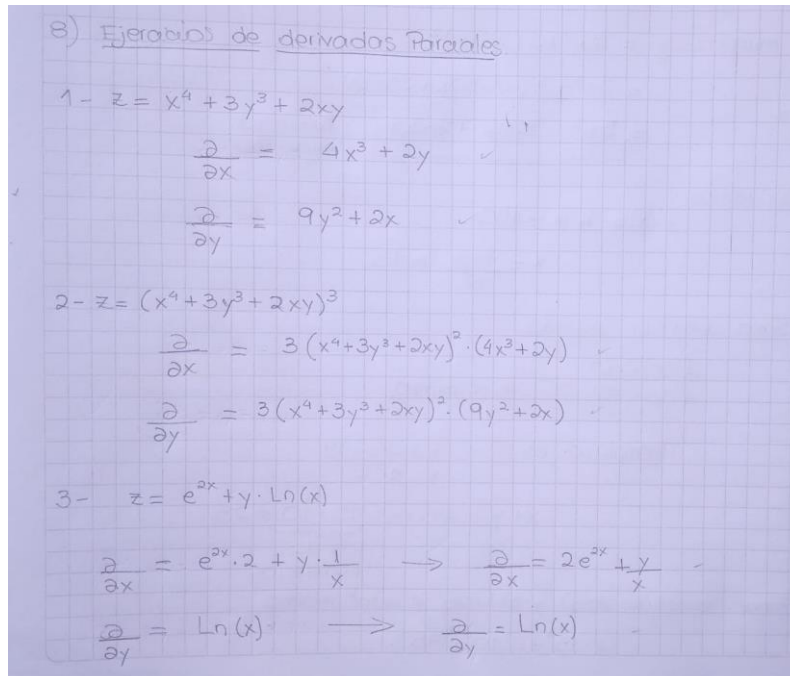 8) Ejercicios de derivadas Parciales
1- z = x⁴ + 3y³ + 2xy
∂/∂x = 4x³ + 2y
∂/∂y = 9y² + 2x
2- z = (x⁴ + 3y³ + 2xy)³
∂/∂x = 3(x⁴ + 3y³ + 2xy)² · (4x³ + 2y)
∂/∂y = 3(x⁴ + 3y³ + 2xy)² · (9y² + 2x)
3- z = e²ˣ + y · Ln(x)
∂/∂x = e²ˣ · 2 + y · 1/x → ∂/∂x = 2e²ˣ + y/x
∂/∂y = Ln(x) → ∂/∂y = Ln(x)